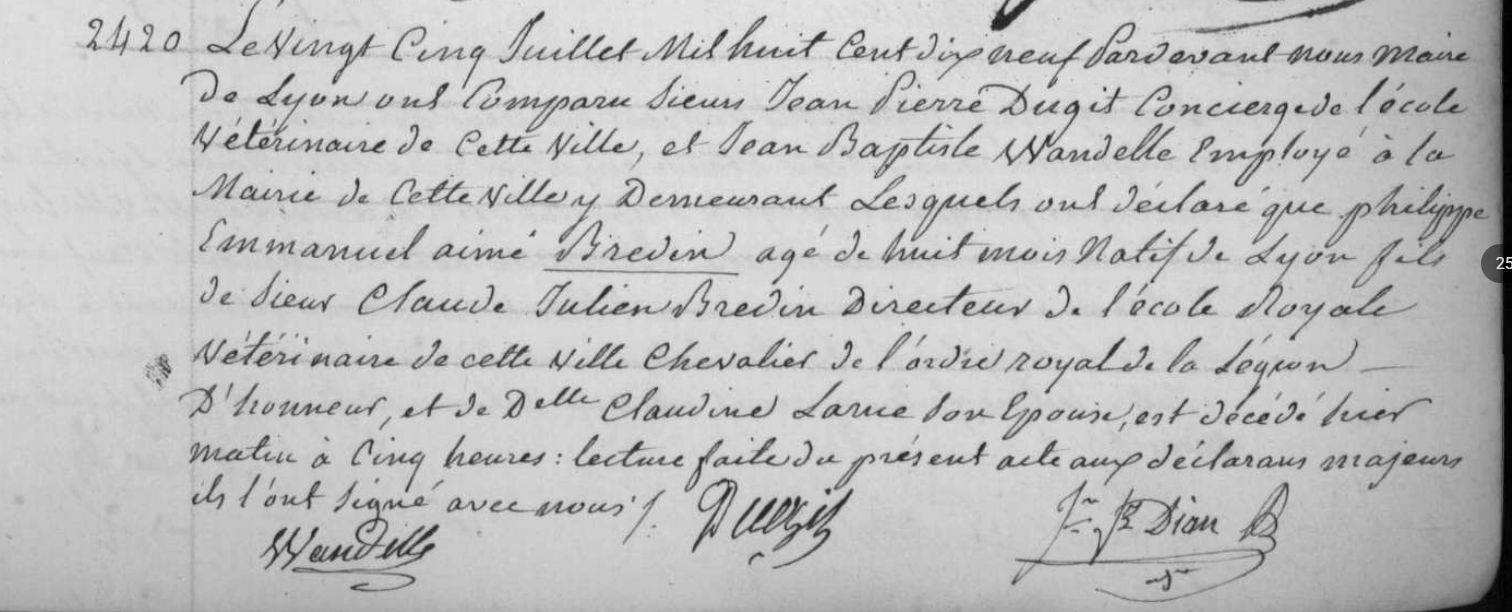 2420 Le Vingt Cinq Juillet Mil huit Cent dix neuf Pardevant nous Maire
de Lyon ont Comparu Sieurs Jean Pierre Dugit Concierge de l'école
Vétérinaire de Cette Ville, et Jean Baptiste Wandelle Employé à la
Mairie de Cette Ville y Demeurant Lesquels ont déclaré que philippe
Emmanuel aimé Bredin agé de huit mois Natif de Lyon fils
de Sieur Claude Julien Bredin Directeur de l'école Royale
Vétérinaire de cette Ville Chevalier de l'ordre royal de la Légion
D'honneur, et de Delle Claudine Larue Son Epouse, est décédé hier
matin à Cinq heures : lecture faite du présent acte aux déclarans majeurs
ils l'ont Signé avec nous /. Dugit
Wandelle
25